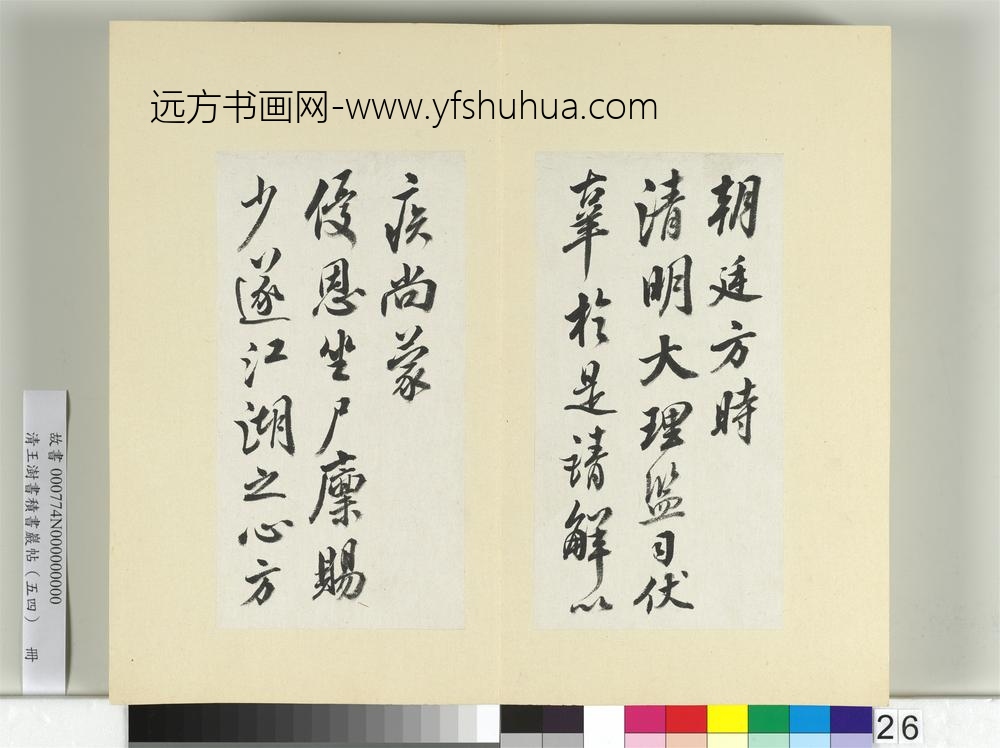 远方书画网-www.yfshuhua.com
朝廷方時
清明大理監司伏
辜於是請解以
疾尚蒙
優恩坐尸廩賜
少遂江湖之心方
故書 000774N000000000
清王澍書積書巖帖（五四） 冊
26